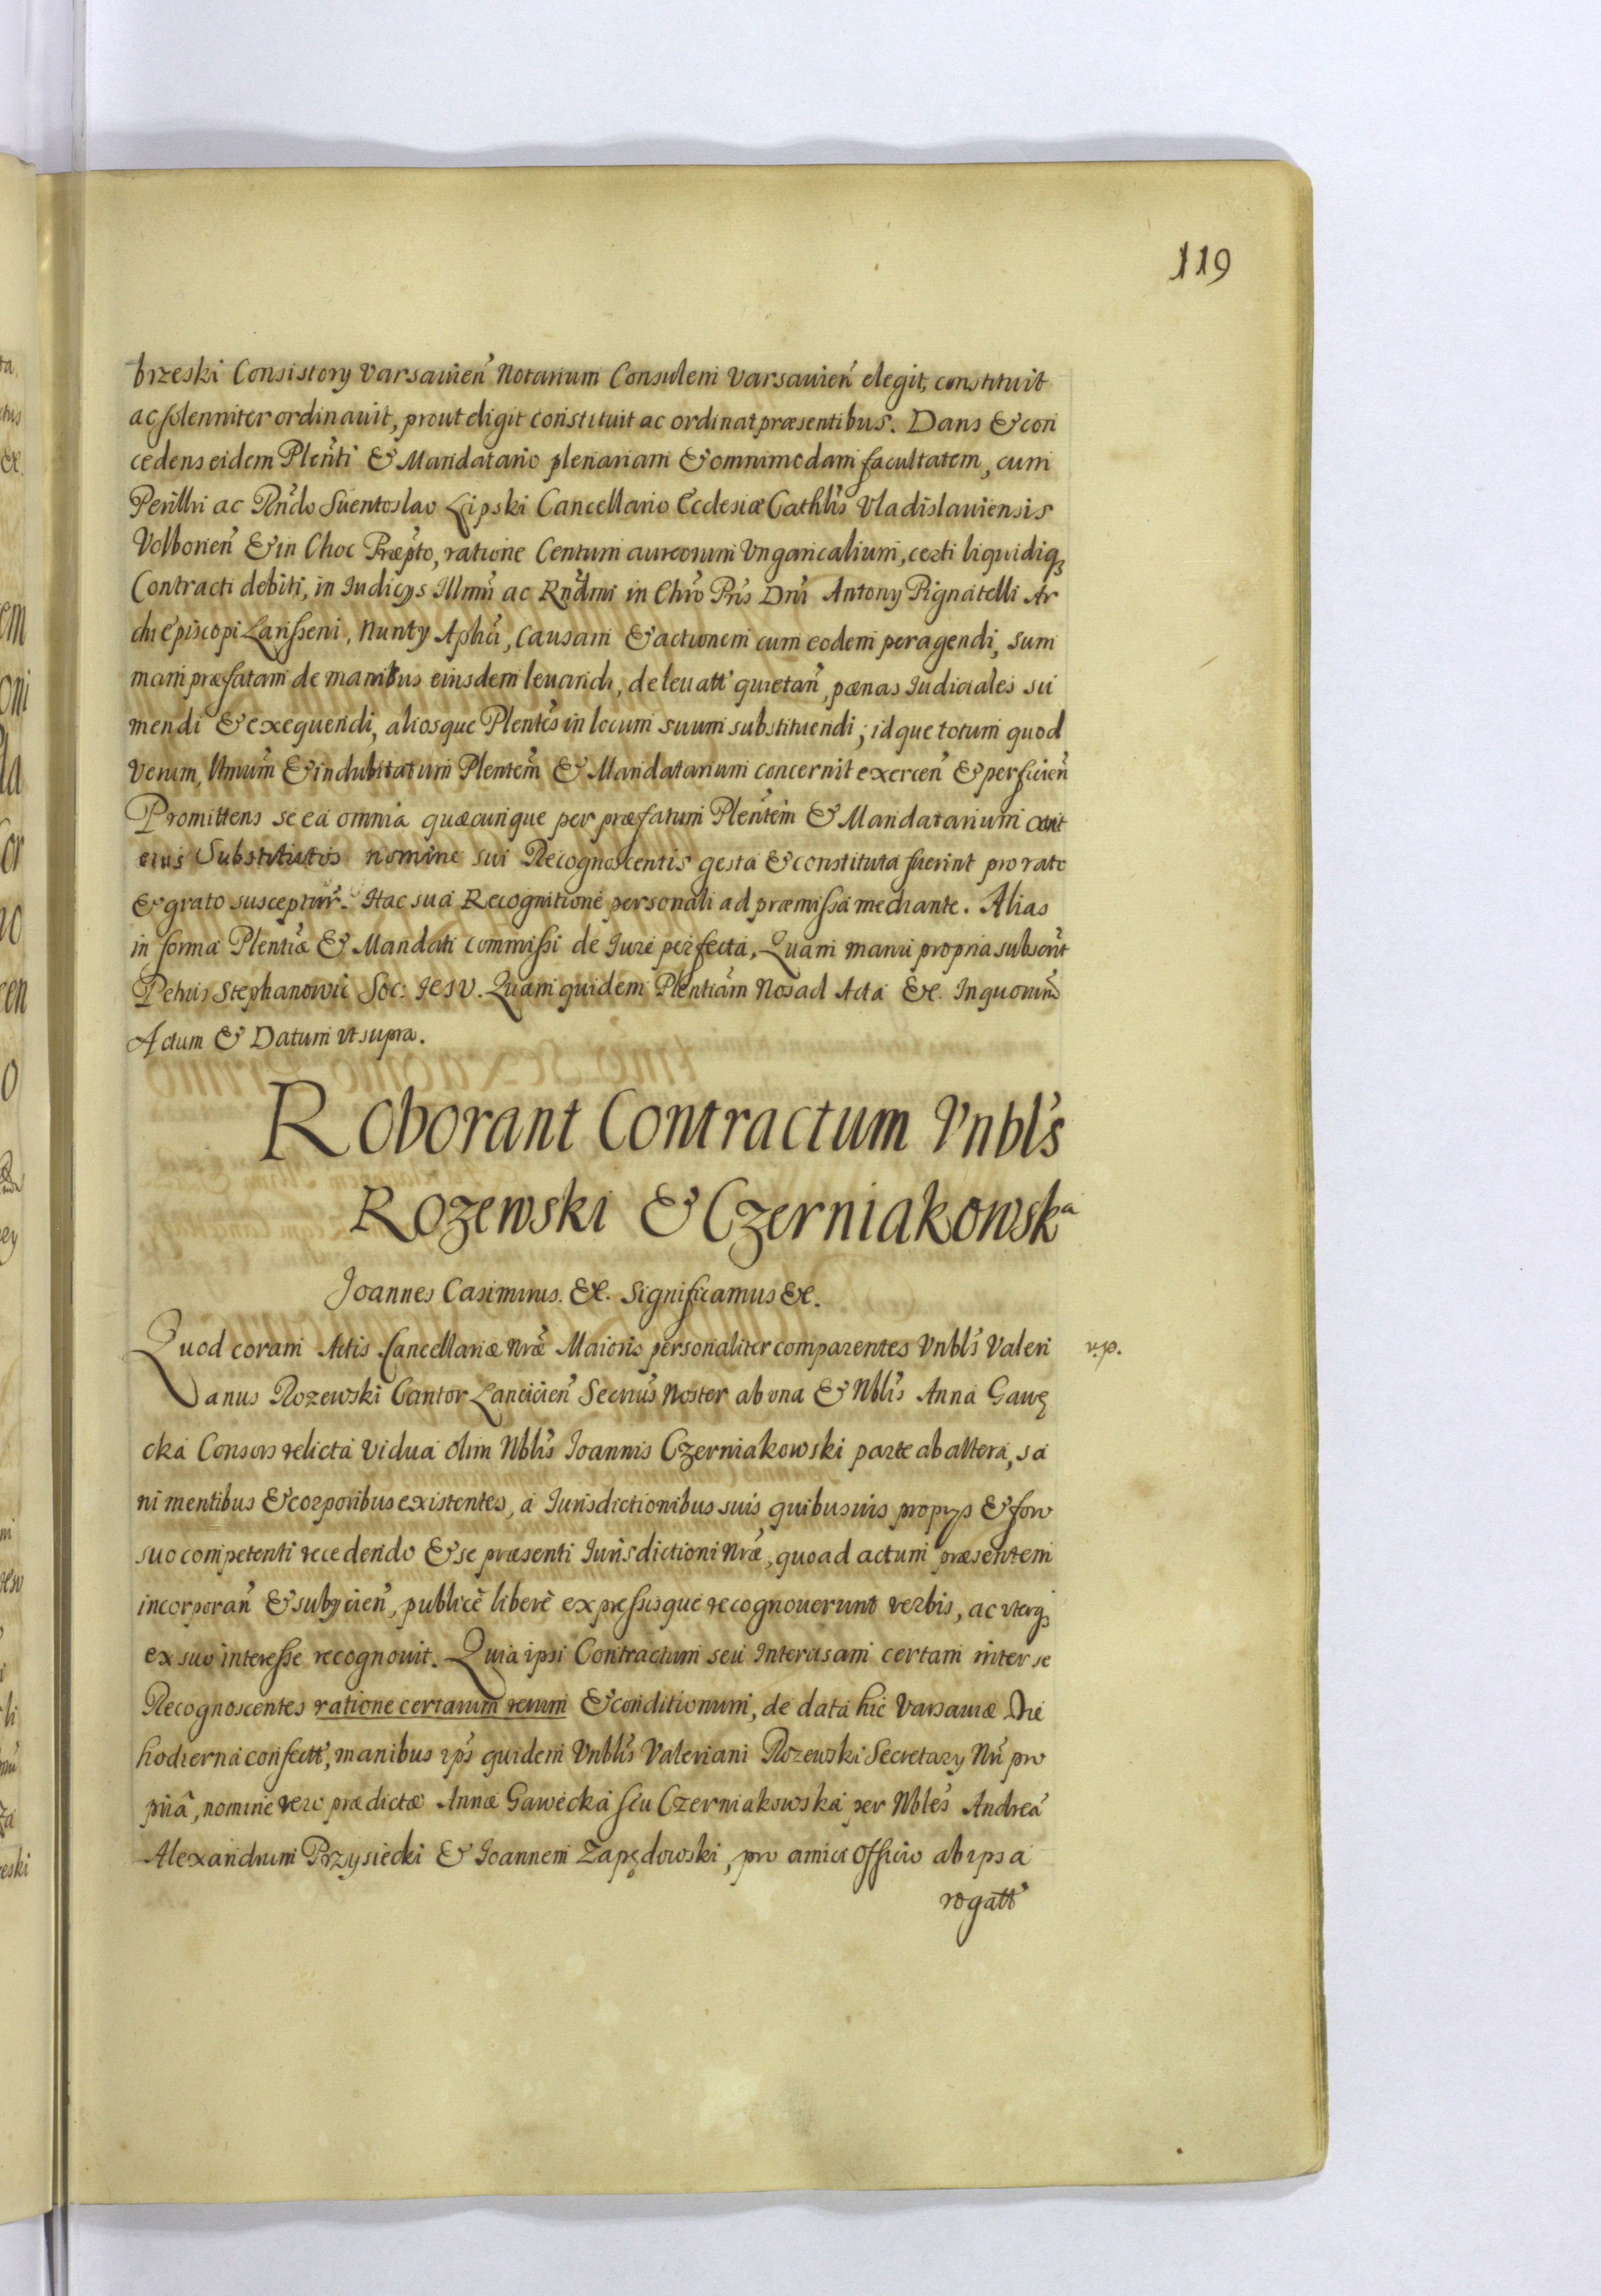 119
brzeski Consistory Varsavien̄ Notarium Consulem Varsavien̄ elegit, constituit
ac solenniter ordinavit, prout eligit constituit ac ordinat præsentibus. Dans & con
cedens eidem Plen̄ti & Mandatario plenariam & omnimodam facultatem, cum
Perilli ac Rn̄do Suentoslao Lipski Cancellario Ecclesiæ Cathl̄is Vladislaviensis
Volborien̄ & in Choc Præp̄to, ratione Centum aureorum Ungaricalium, certi liquidiq́
Contracti debiti, in Iudicys Illm̄i ac Rn̄dmi in Chr̄o Pr̄is Dn̄i Antony Pignatelli Ar
chiEpiscopi Larisseni, Nunty Aplici, causam & actionem cum eodem peragendi, sum
mam præfatam de manibus eiusdem levandi, de levatt' quietan̄, pænas Iudiciales su
mendi & exequendi, aliosque Plentes in locum suum substituendi, id que totum quod
verum, ltmum̄ & indubitatum Plentem̄ & Mandatarium concernit exercen̄ & perficien̄
Promittens se ea omnia quæcunque per præfatum Plen̄tem & Mandatarium aut
eius Substitutos nomine sui Recognoscentis gesta & constituta fuerint pro rato
& grato susceptur̄. Hac sua Recognitione personali ad præmissa mediante. Alias
in forma Plentiæ & Mandati commissi de Iure perfecta, Quam manu propria subscrīt
Petrus Stephanowic Soc: IESV. Quam quidem Plentiam̄ Nos ad Acta &c. In quorum̄
Actum & Datum ut supra.
Roborant Contractum Vnbl̄s
Rozewski & Czerniakowska
Joannes Casimirus. &c. Significamus &c.
Quod coram Actis Cancellariæ Nrǣ Maioris personaliter comparentes Vnbl̄s Valeri
v.p.
anus Rozewski Cantor Lancicien̄ Secrius̄ Noster ab una & Nbl̄is Anna Gawę
cka Consors relicta vidua olim Nbl̄is Joannis Czerniakowski parte ab altera, sa
ni mentibus & corporibus existentes, a Iurisdictionibus suis quibusvis propys & foro
suo competenti recedendo & se præsenti Iurisdictioni Nrǣ, quoad actum præsentem
incorporan̄ & subycien̄, publicè liberè expressisque recognoverunt verbis, ac uterq́
ex suo interesse recognovit. Quia ipsi Contractum seu Intercisam certam inter se
Recognoscentes ratione certarum rerum & conditionum, de data hic Varsaviæ Die
hodierna confectt', manibus ip̄s quidem Vnbl̄is Valeriani Rozewski Secretary Nr̄i pro
pria, nomine vero prædictæ Annæ Gawecka seu Czerniakowska per Nbles̄ Andrea
Alexandrum Przysiecki & Joannem Zapędowski, pro amici officio ab ipsa
rogatt'